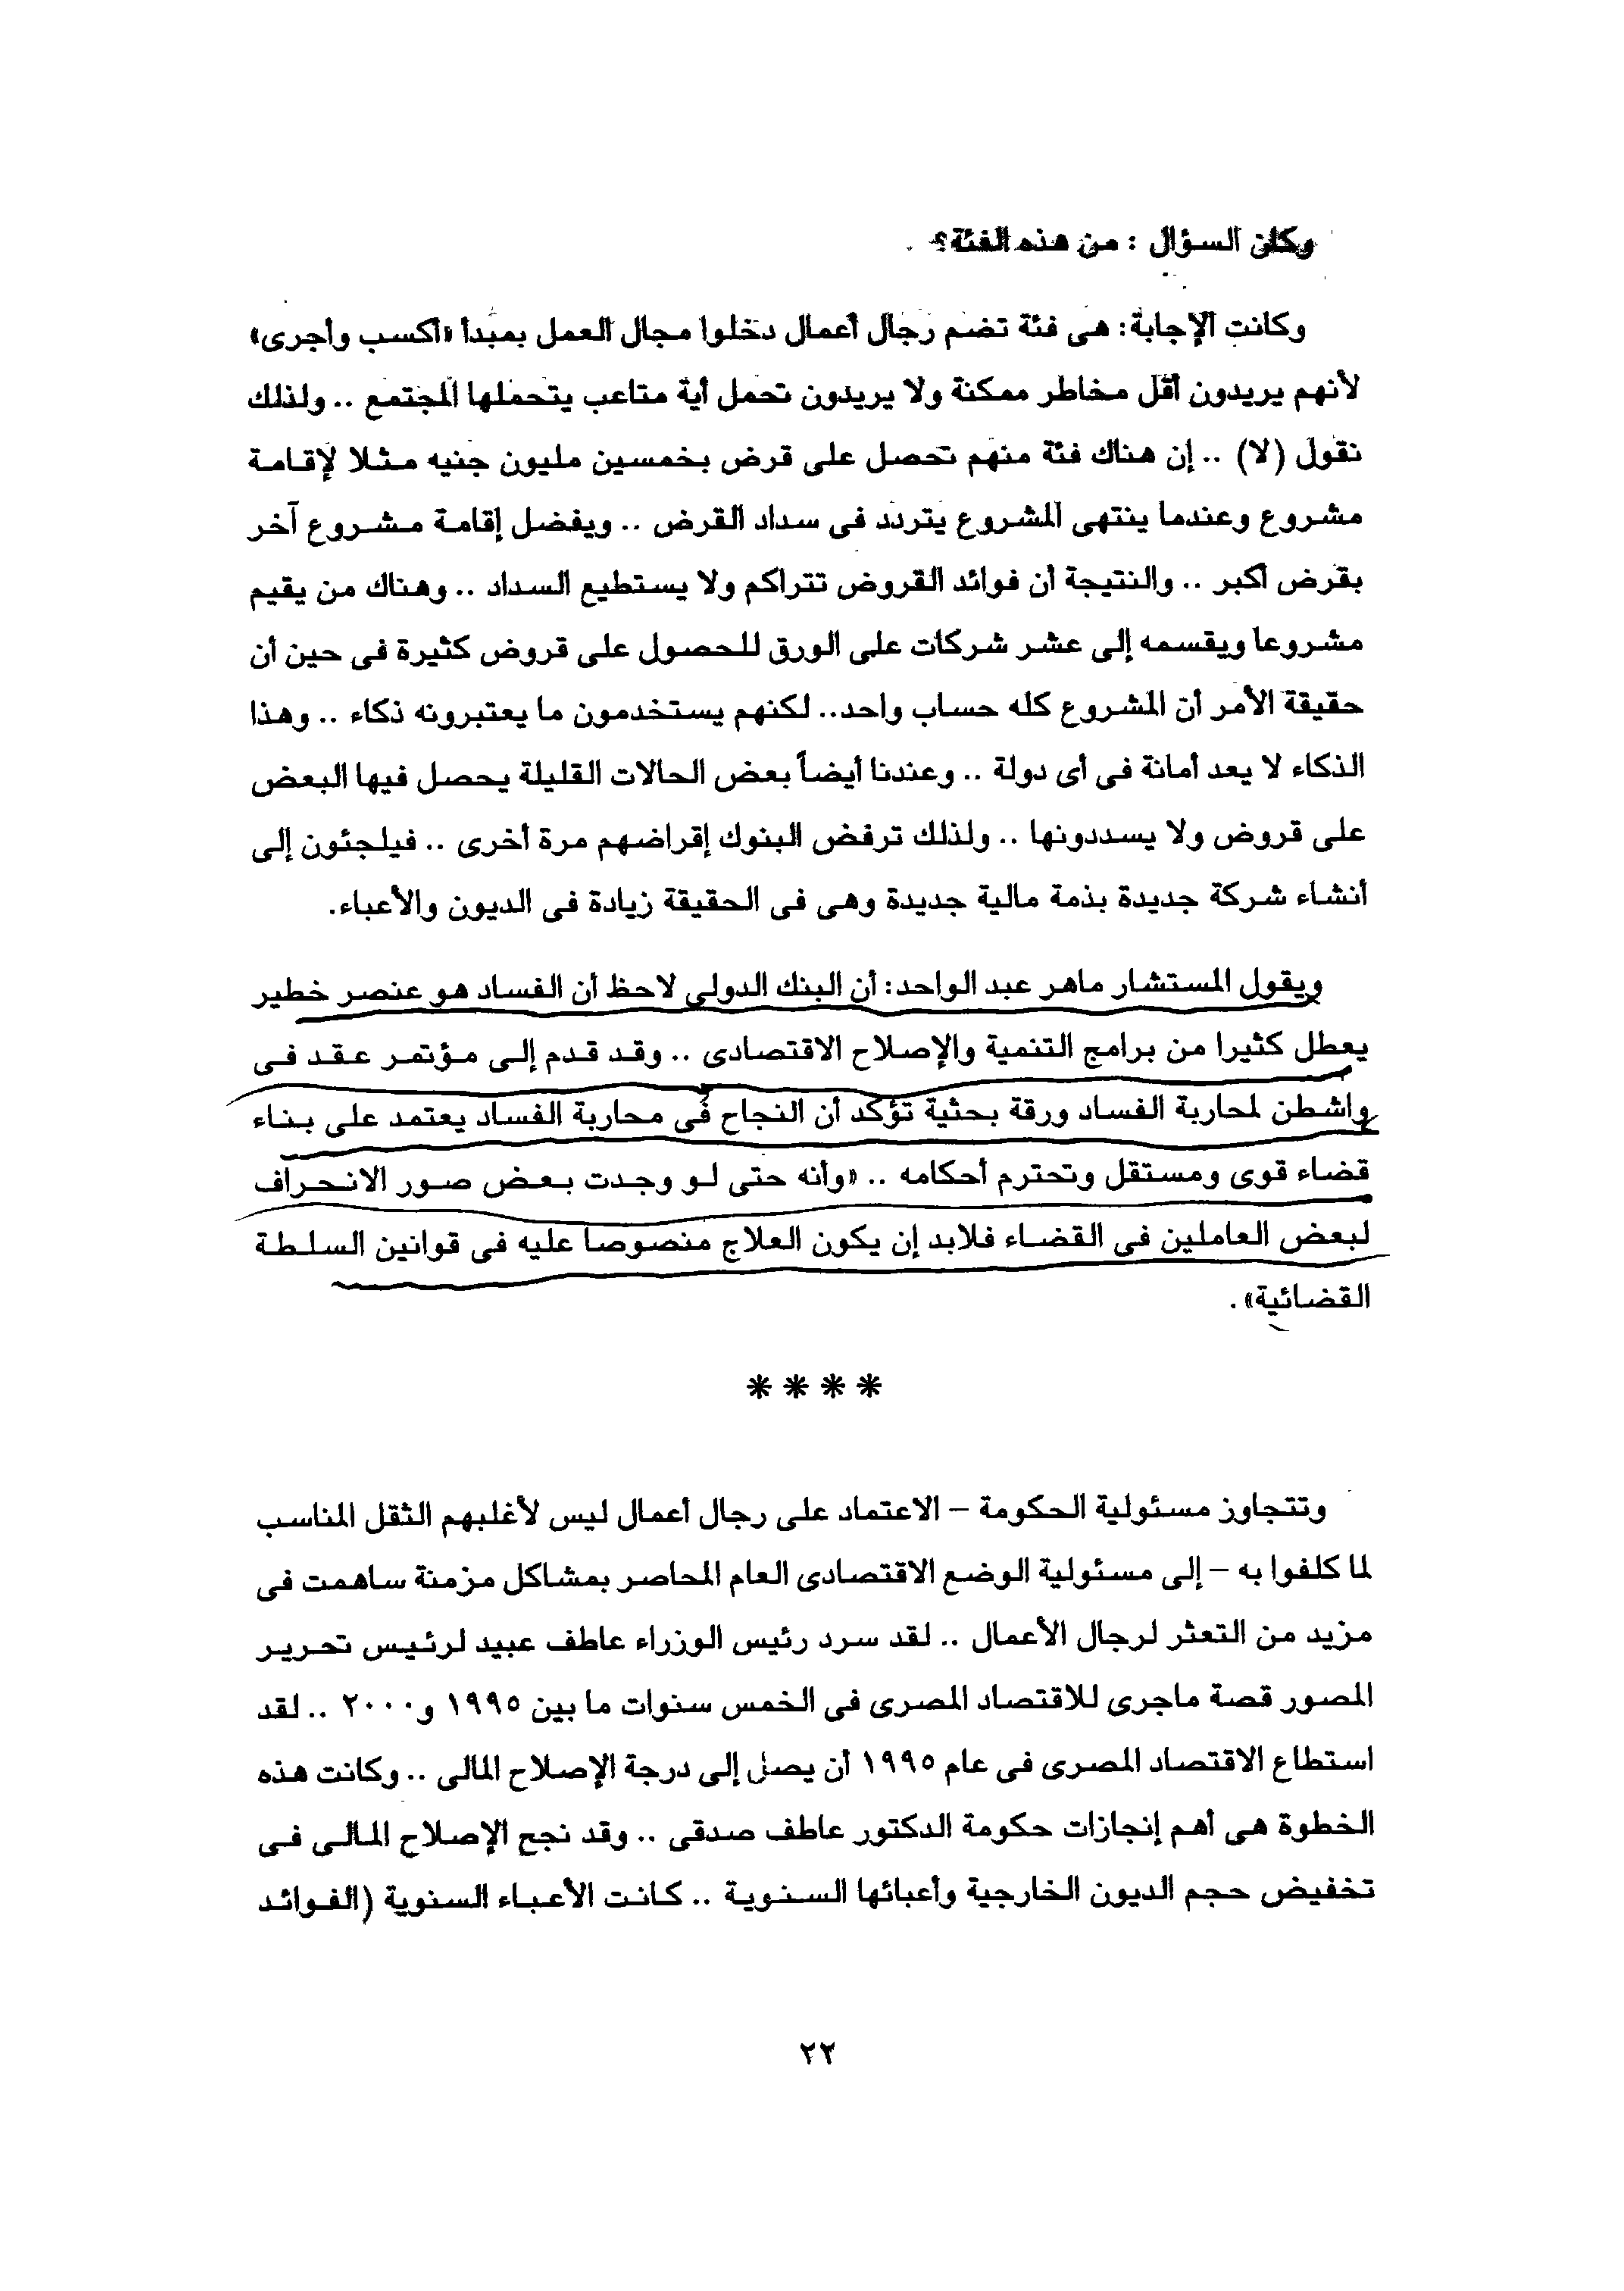 وكان السؤال : من هذه الفئة؟
وكانت الإجابة: هى فئة تضم رجال أعمال دخلوا مجال العمل بمبدأ «أكسب وأجرى»
لأنهم يريدون أقل مخاطر ممكنة ولا يريدون تحمل أية متاعب يتحملها المجتمع .. ولذلك
نقول (لا) .. إن هناك فئة منهم تحصل على قرض بخمسين مليون جنيه مثلا لإقامة
مشروع وعندما ينتهى المشروع يتردد فى سداد القرض .. ويفضل إقامة مشروع آخر
بقرض أكبر .. والنتيجة أن فوائد القروض تتراكم ولا يستطيع السداد .. وهناك من يقيم
مشروعا ويقسمه إلى عشر شركات على الورق للحصول على قروض كثيرة فى حين أن
حقيقة الأمر أن المشروع كله حساب واحد.. لكنهم يستخدمون ما يعتبرونه ذكاء .. وهذا
الذكاء لا يعد أمانة فى أى دولة .. وعندنا أيضاً بعض الحالات القليلة يحصل فيها البعض
على قروض ولا يسددونها .. ولذلك ترفض البنوك إقراضهم مرة أخرى .. فيلجئون إلى
أنشاء شركة جديدة بذمة مالية جديدة وهى فى الحقيقة زيادة فى الديون والأعباء.
ويقول المستشار ماهر عبد الواحد: أن البنك الدولى لاحظ أن الفساد هو عنصر خطير
يعطل كثيرا من برامج التنمية والإصلاح الاقتصادى .. وقد قدم إلى مؤتمر عقد فى
واشطن لمحاربة الفساد ورقة بحثية تؤكد أن النجاح فى محاربة الفساد يعتمد على بناء
قضاء قوى ومستقل وتحترم أحكامه .. «وأنه حتى لو وجدت بعض صور الانحراف
لبعض العاملين فى القضاء فلابد إن يكون العلاج منصوصا عليه فى قوانين السلطة
القضائية» .
* * * *
وتتجاوز مسئولية الحكومة – الاعتماد على رجال أعمال ليس لأغلبهم الثقل المناسب
لما كلفوا به – إلى مسئولية الوضع الاقتصادى العام المحاصر بمشاكل مزمنة ساهمت فى
مزيد من التعثر لرجال الأعمال .. لقد سرد رئيس الوزراء عاطف عبيد لرئيس تحرير
المصور قصة ماجرى للاقتصاد المصرى فى الخمس سنوات ما بين ١٩٩٥ و٢٠٠٠ .. لقد
استطاع الاقتصاد المصرى فى عام ١٩٩٥ أن يصل إلى درجة الإصلاح المالى .. وكانت هذه
الخطوة هى أهم إنجازات حكومة الدكتور عاطف صدقى .. وقد نجح الإصلاح المالى فى
تخفيض حجم الديون الخارجية وأعبائها السنوية .. كانت الأعباء السنوية (الفوائد
٢٢